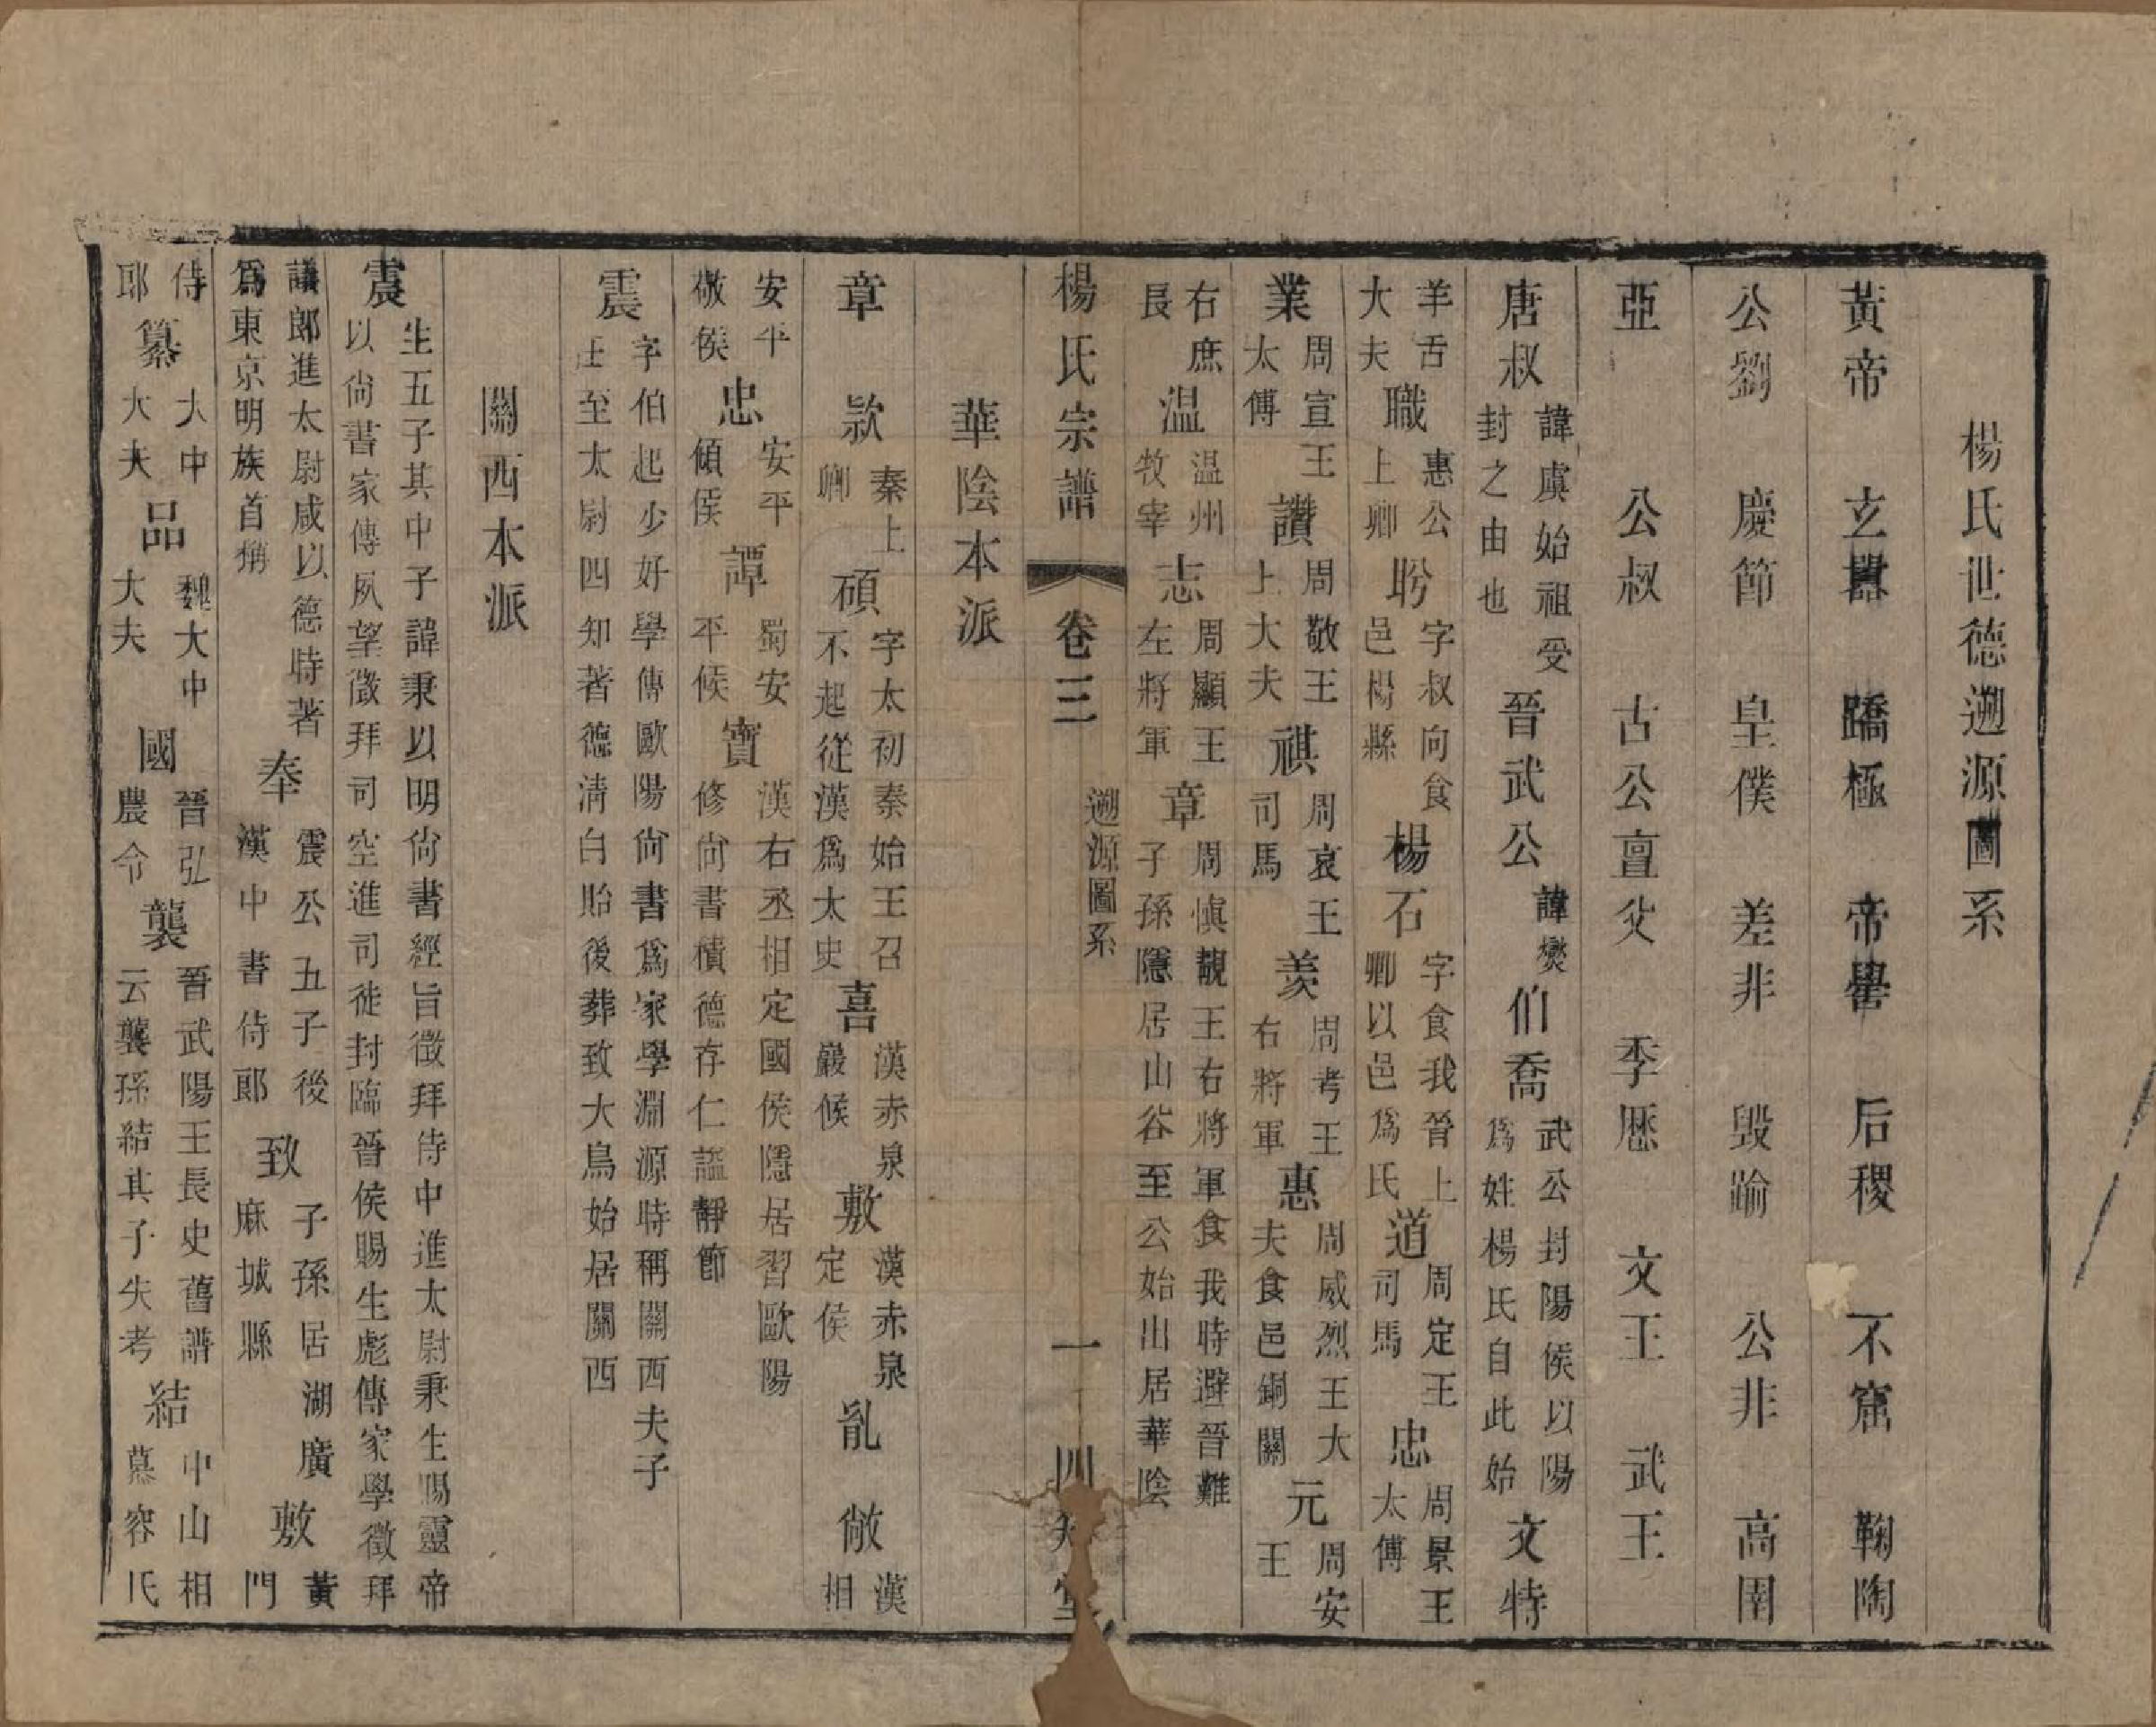 楊氏世德遡源圖系
黃帝 玄囂 蹻極 帝嚳 后稷 不窋 鞠陶
公劉 慶節 皇僕 差非 毀踰 公非 高圉
亞 公叔 古公亶父 季歷 文王 武王
唐叔 諱虞始祖受封之由也 晉武公 諱爕 伯喬 武公封陽侯以陽爲姓楊氏自此始 文 特
羊舌大夫 職 惠公上卿 肸 字叔向食邑楊縣 楊石 字食我晉上卿以邑爲氏 道 周定王司馬 忠 周景王太傅
業 周宣王太傅 讚 周敬王上大夫 祺 周哀王司馬 羨 周考王右將軍 惠 周威烈王大夫食邑銅關 元 周安王
右庶長 温 温州牧宰 志 周顯王左將軍 章 周慎靚王右將軍食我時避晉難子孫隱居山谷至公始出居華陰
楊氏宗譜 卷三 遡源圖系 一 四知堂
華陰本派
章 款 秦上卿 碩 字太初秦始王召不起從漢爲太史 喜 漢赤泉嚴候 敷 漢赤泉定侯 胤 敞 漢相
安平敬侯 忠 安平傾侯 譚 蜀安平候 寶 漢右丞相定國侯隱居習歐陽修尙書積德存仁謚靜節
震 字伯起少好學傳歐陽尙書爲家學淵源時稱關西夫子仕至太尉四知著德淸白貽後葬致大鳥始居關西
關西本派
震 生五子其中子諱秉以明尙書經旨徵拜侍中進太尉秉生賜靈帝以尙書家傳夙望徵拜司空進司徒封臨晉侯賜生彪傳家學徵拜
議郎進太尉咸以德時著爲東京明族首稱 奉 震公五子後漢中書侍郎 致 子孫居湖廣麻城縣 敷 黃門
侍郎 纂 大中大夫 品 魏大中大夫 國 晉弘農令 襲 晉武陽王長史舊譜云襲孫結其子失考 結 中山相慕容氏